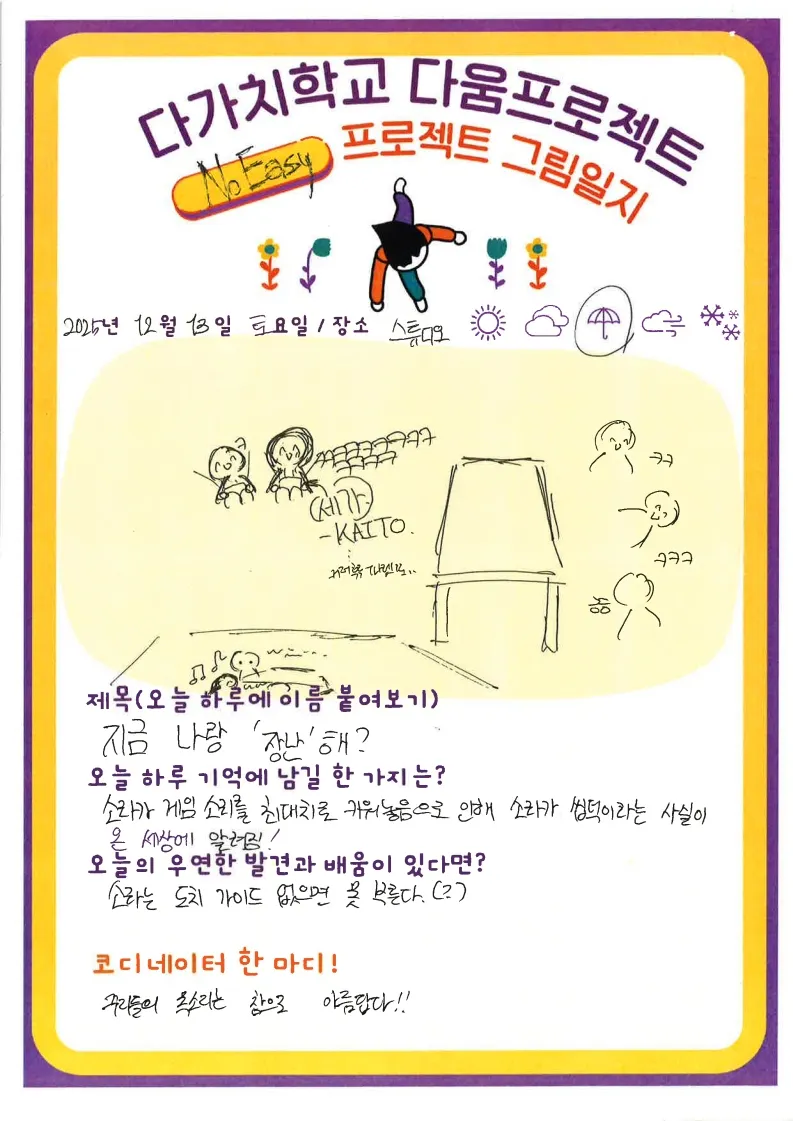 다가치학교 다움프로젝트
프로젝트 그림일지
No Easy
2025년 12월 13일 토요일 / 장소 스튜디오
ㅋ
ㅋㅋㅋ
(세카)
-KAITO.
ㅋㅋ
ㅋㅋㅋ
제목(오늘 하루에 이름 붙여보기)
지금 나랑 '장난' 해?
오늘 하루 기억에 남길 한 가지는?
소라가 게임 소리를 최대치로 키워놓음으로 인해 소라가 씹덕이라는 사실이
온 세상에 알려짐!
오늘의 우연한 발견과 배움이 있다면?
소라는 도치 가이드 없으면 못 부른다. (?)
코디네이터 한 마디!
우리들의 목소리는 참으로 아름답다!!